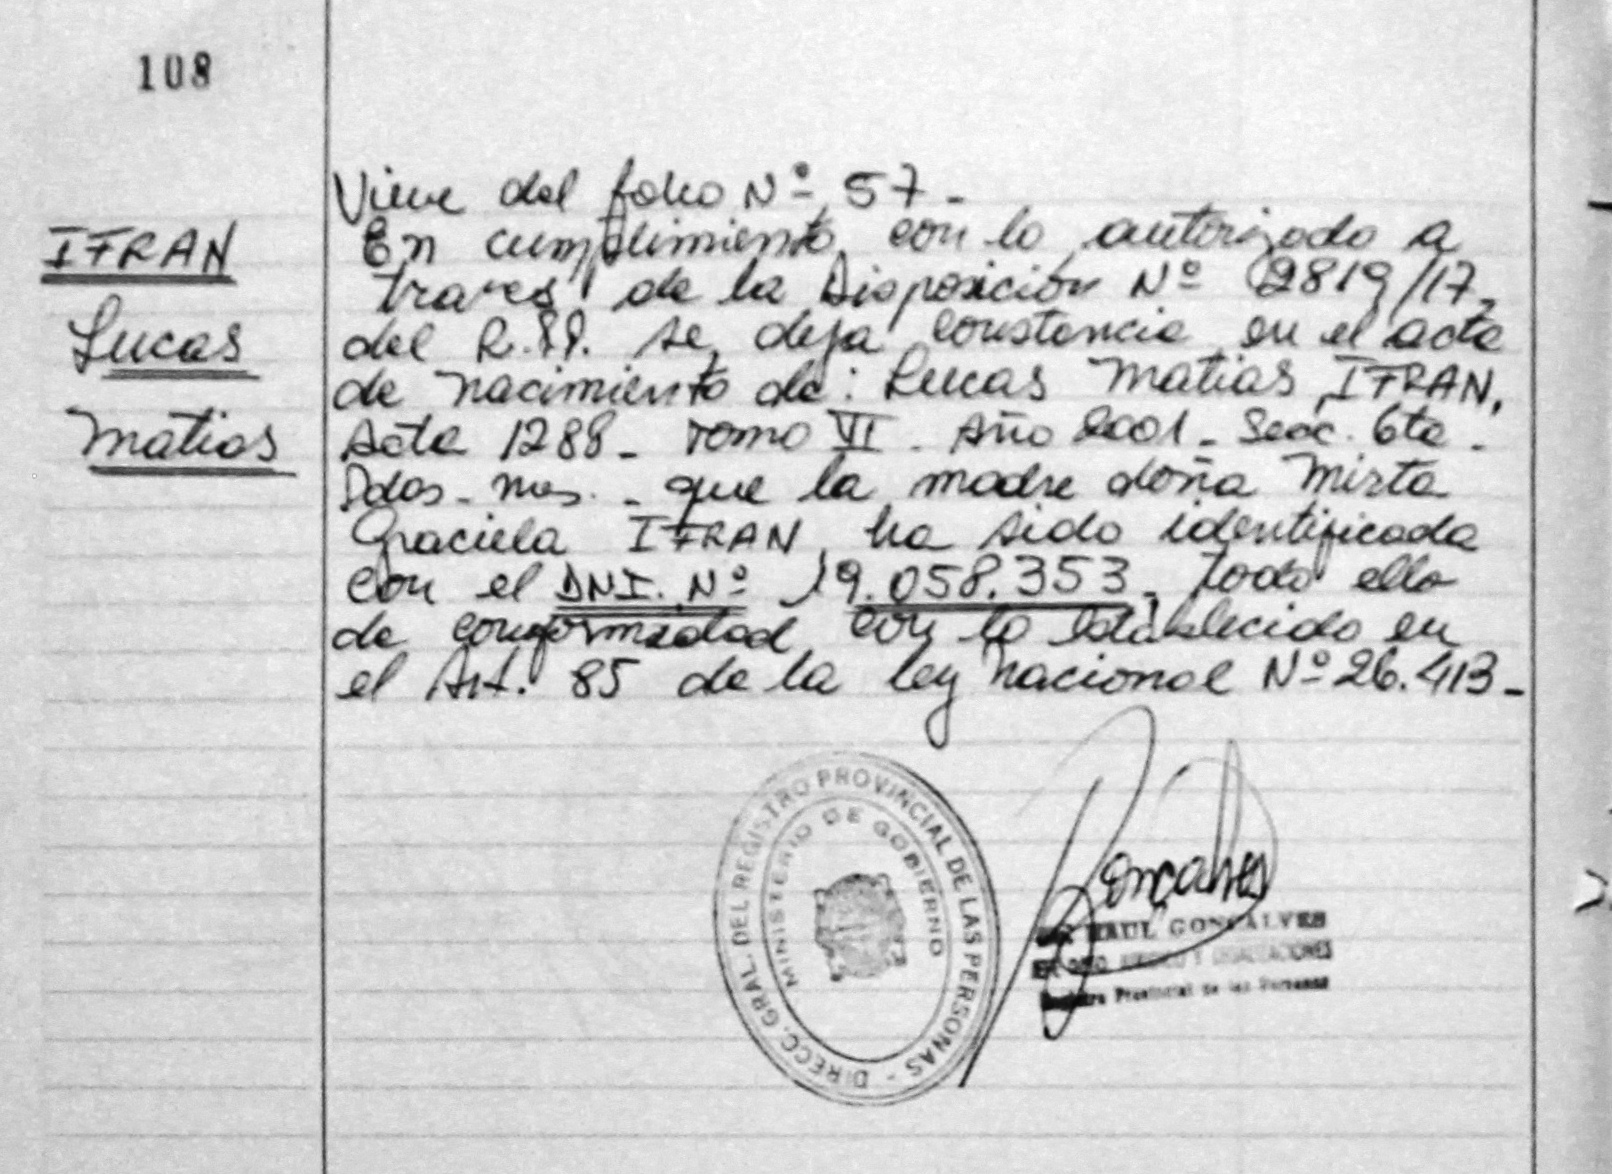 108
IFRAN
Lucas
Matias
Viene del folio Nº 57-
En cumplimiento con lo autorizado a
traves de la Disposición Nº 2819/17-
del R.PP. se deja constancia en el acta
de nacimiento de: Lucas Matias IFRAN,
Acta 1288- Tomo VI- Año 2001- Secc. 6ta-
Pdas- que la madre doña Mirta
Graciela IFRAN, ha sido identificada
con el DNI. Nº 19.058.353- Todo ello
de conformidad con lo establecido en
el Art. 85 de la ley nacional Nº 26.413-
DIRECC. GRAL. DEL REGISTRO PROVINCIAL DE LAS PERSONAS -
MINISTERIO DE GOBIERNO
Goncalves
RAUL GONCALVES
Y
Registro Provincial de las Personas